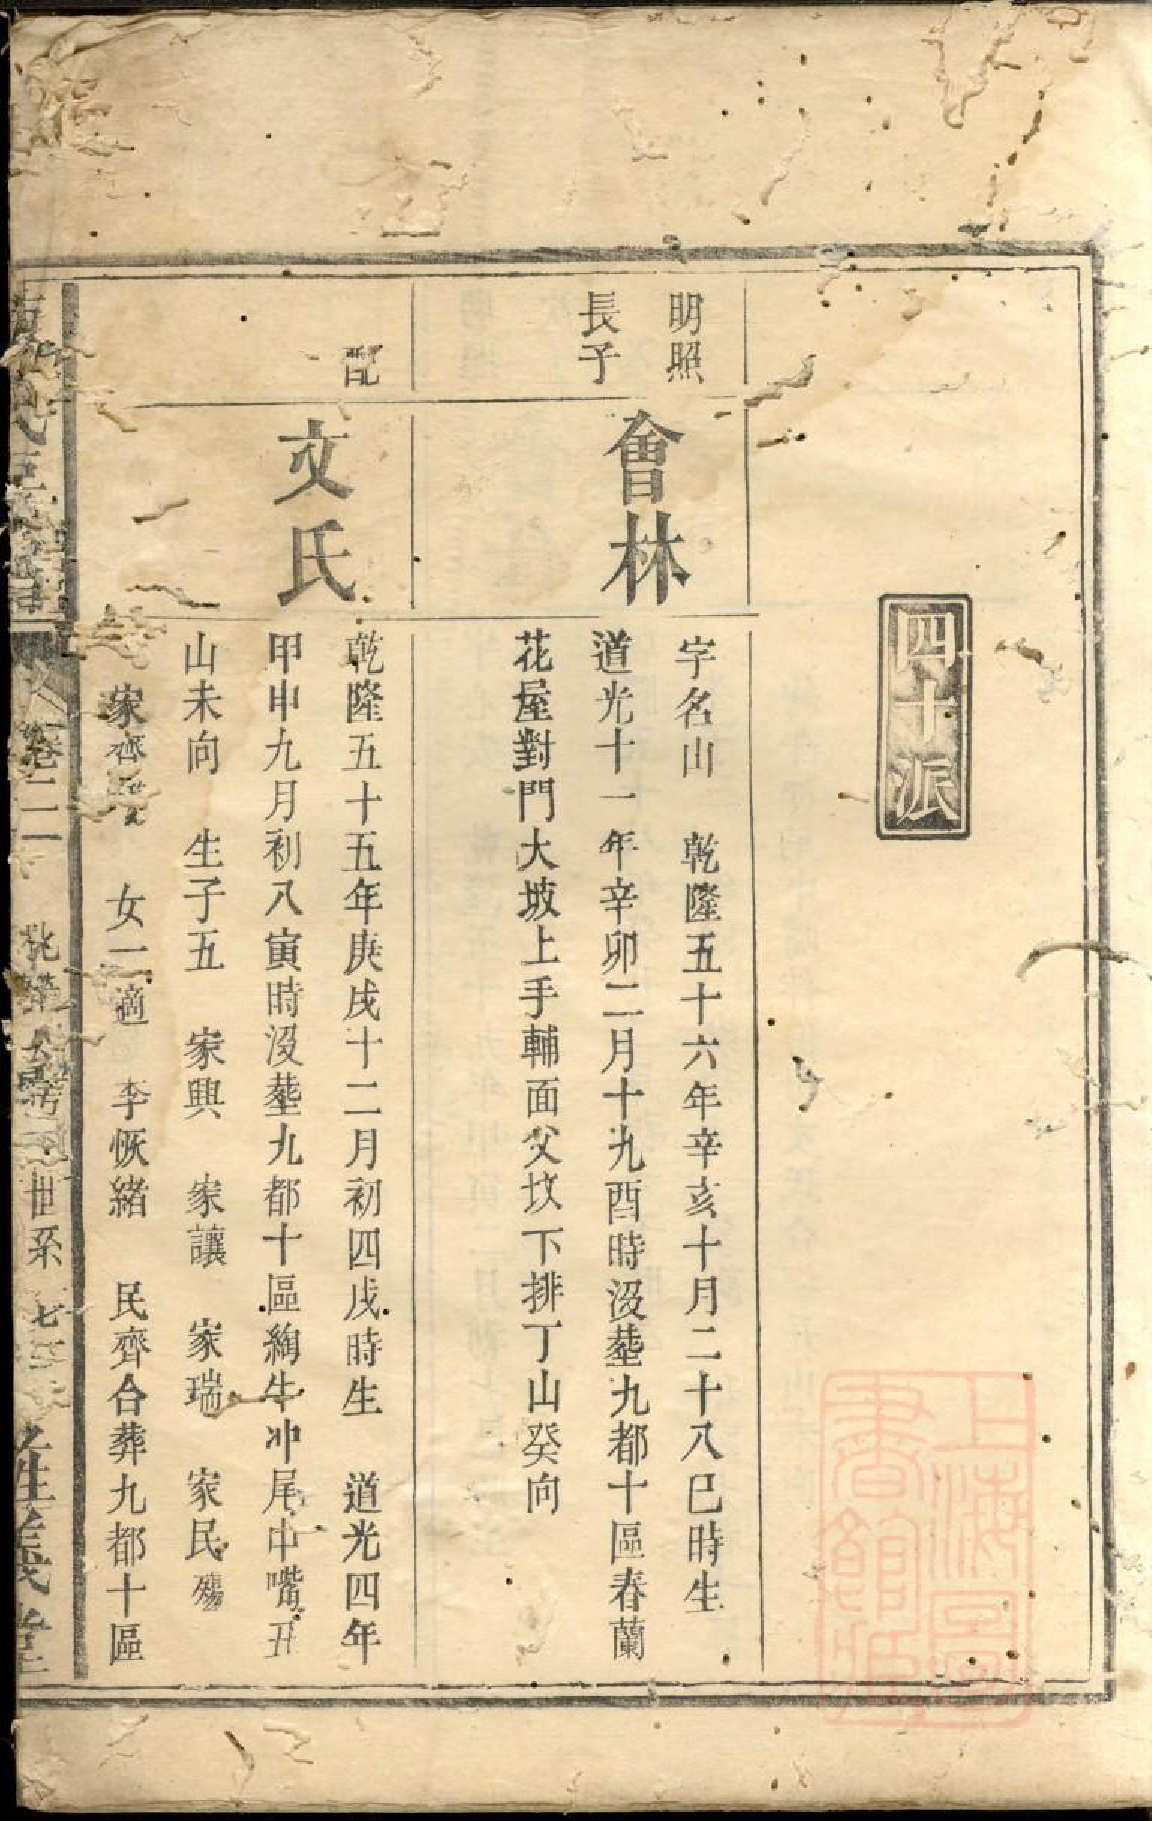 四十派
明照
長子
會林
字名山 乾隆五十六年辛亥十月二十八巳時生
道光十一年辛卯二月十九酉時沒塟九都十區春蘭
花屋對門大坡上手輔面父坟下排丁山癸向
配
文氏
乾隆五十五年庚戌十二月初四戌時生 道光四年
甲申九月初八寅時沒塟九都十區緺牛冲尾中嘴丑
山未向 生子五 家興 家讓 家瑞 家民殤
家齊 女一適 李恢緒 民齊合葬九都十區
卷二 世系
上海圖書館藏